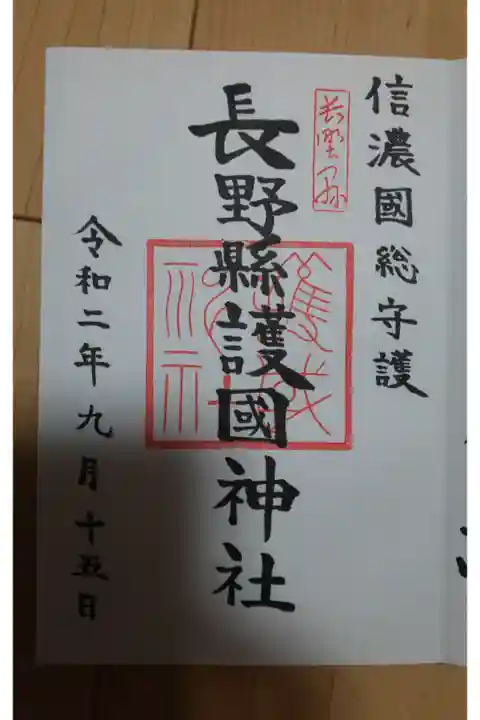 信濃國総守護
長野縣
長野縣護國神社
令和二年九月十五日